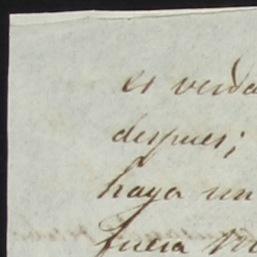 es verda
despues;
haya un
fuera